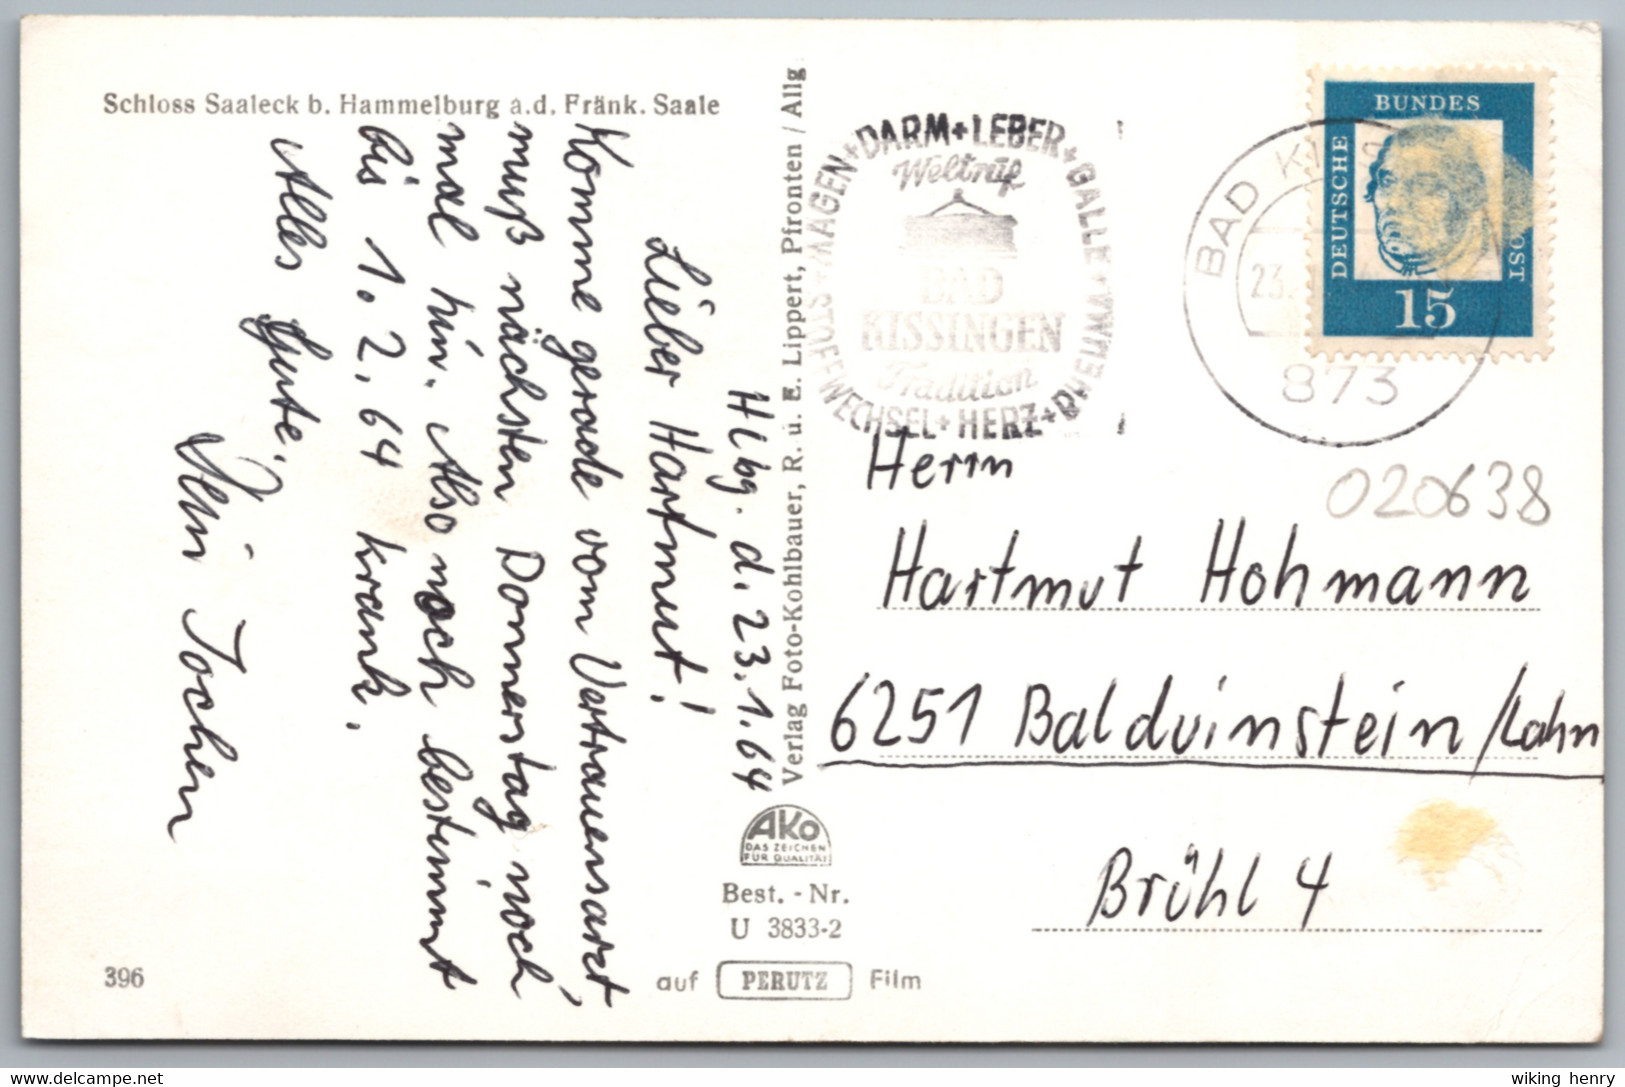 Schloss Saaleck b. Hammelburg a.d. Fränk. Saale
Hbg. d. 23.1.64
Lieber Hartmut!
Komme gerade vom Vertrauensarzt,
muß nächsten Donnerstag noch
mal hin. Also noch bestimmt
bis 1.2.64 krank.
Alles Gute.
Dein Jochen
396
Verlag Foto-Kohlbauer, R. u. E. Lippert, Pfronten / Allg
AKO
DAS ZEICHEN
FÜR QUALITÄT
Best. - Nr.
U 3833-2
auf PERUTZ Film
STOFFWECHSEL + HERZ + RHEUMA + MAGEN + DARM + LEBER + GALLE
Weltruf
BAD
KISSINGEN
Tradition
BAD KIS
23.
873
DEUTSCHE
BUNDES
POST
15
020638
Herrn
Hartmut Hohmann
6251 Balduinstein/Lahn
Brühl 4
wiking henry
delcampe.net